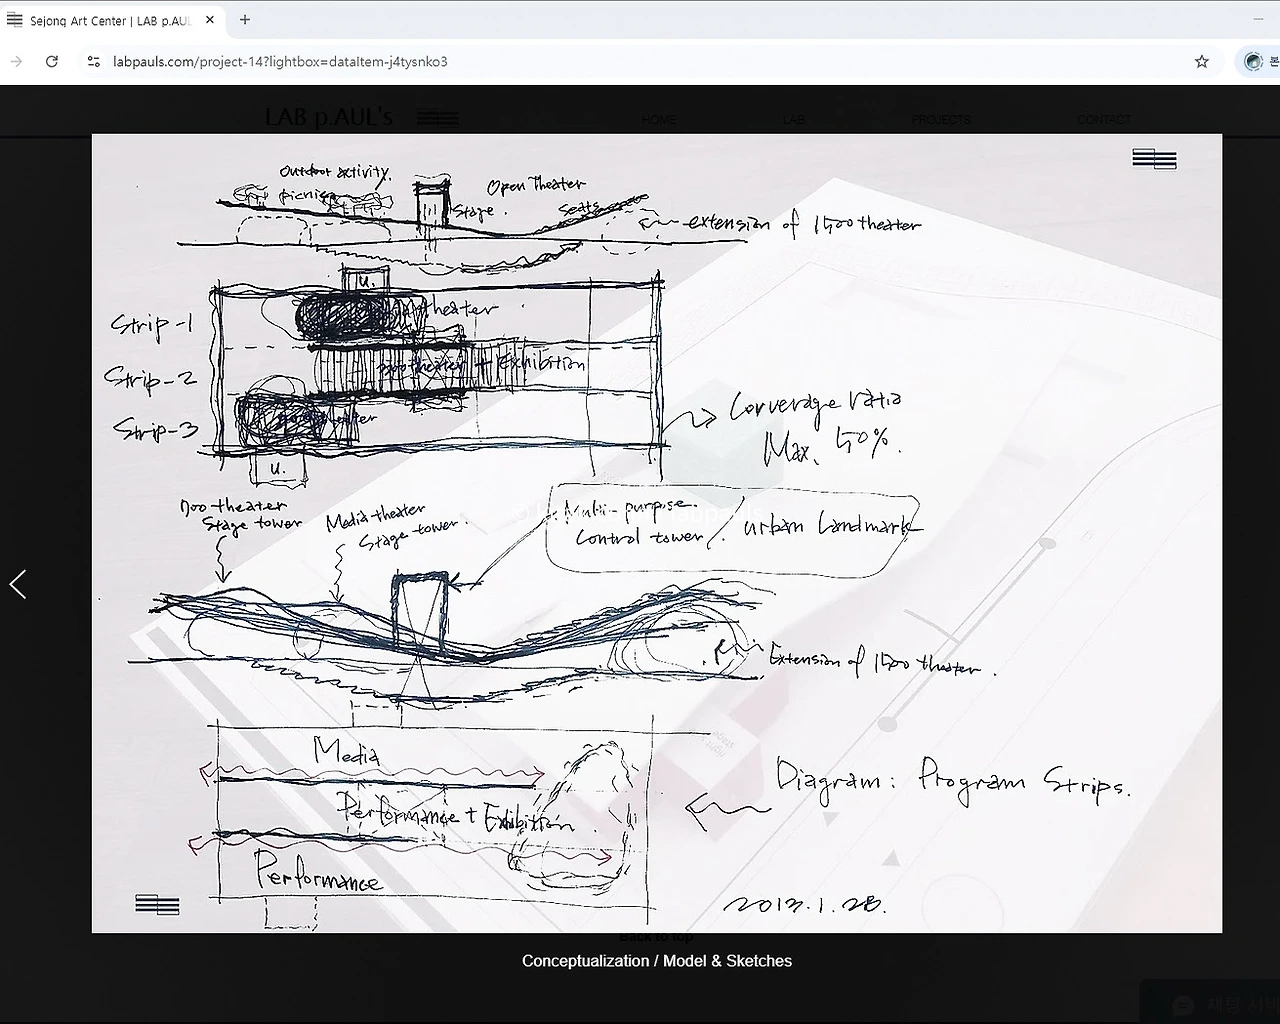 Sejong Art Center | LAB p.AUL
labpauls.com/project-14?lightbox=dataItem-j4tysnko3
본
LAB p.AUL's
HOME
LAB
PROJECTS
CONTACT
Outdoor activity.
picnic
Stage.
Open Theater
Seats
extension of 1500 theater
U.
Strip-1
theater
Strip-2
theater + Exhibition
Strip-3
U.
Converage ratio
Max. 50%.
700 theater
Stage tower
Media theater
Stage tower.
Multi-purpose.
Control tower /. urban Landmark
Extension of 1500 theater.
Media
Performance + Exhibition.
Performance
Diagram: Program Strips.
2013.1.28.
Back to top
Conceptualization / Model & Sketches
채팅